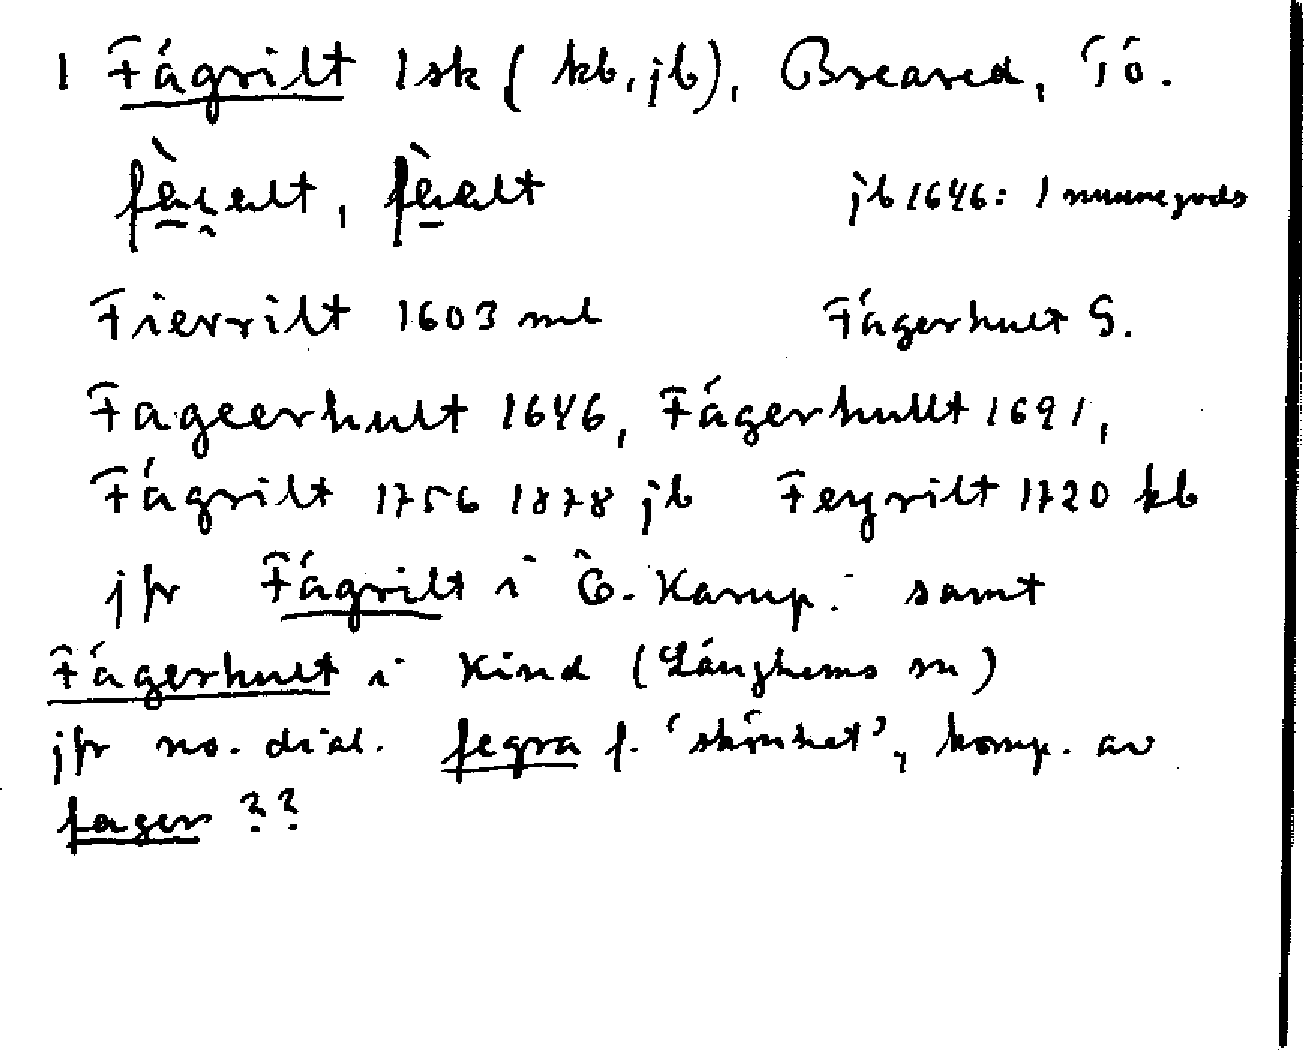 1 Fägrilt 1 sk ( kb, jb), Breared, Tö.
jb 1646: 1 nunnegods
Fierrilt 1603 ml Fägerhult G.
Fageerhult 1646, Fägerhullt 1691,
Fägrilt 1756 1878 jb Feyrilt 1720 kb
jfr Fägrilt i Ö. Karup. samt
Fägerhult i Kind (Länghems sn)
jfr no. dial. fegra f. 'skönhet', komp. av
fager ??